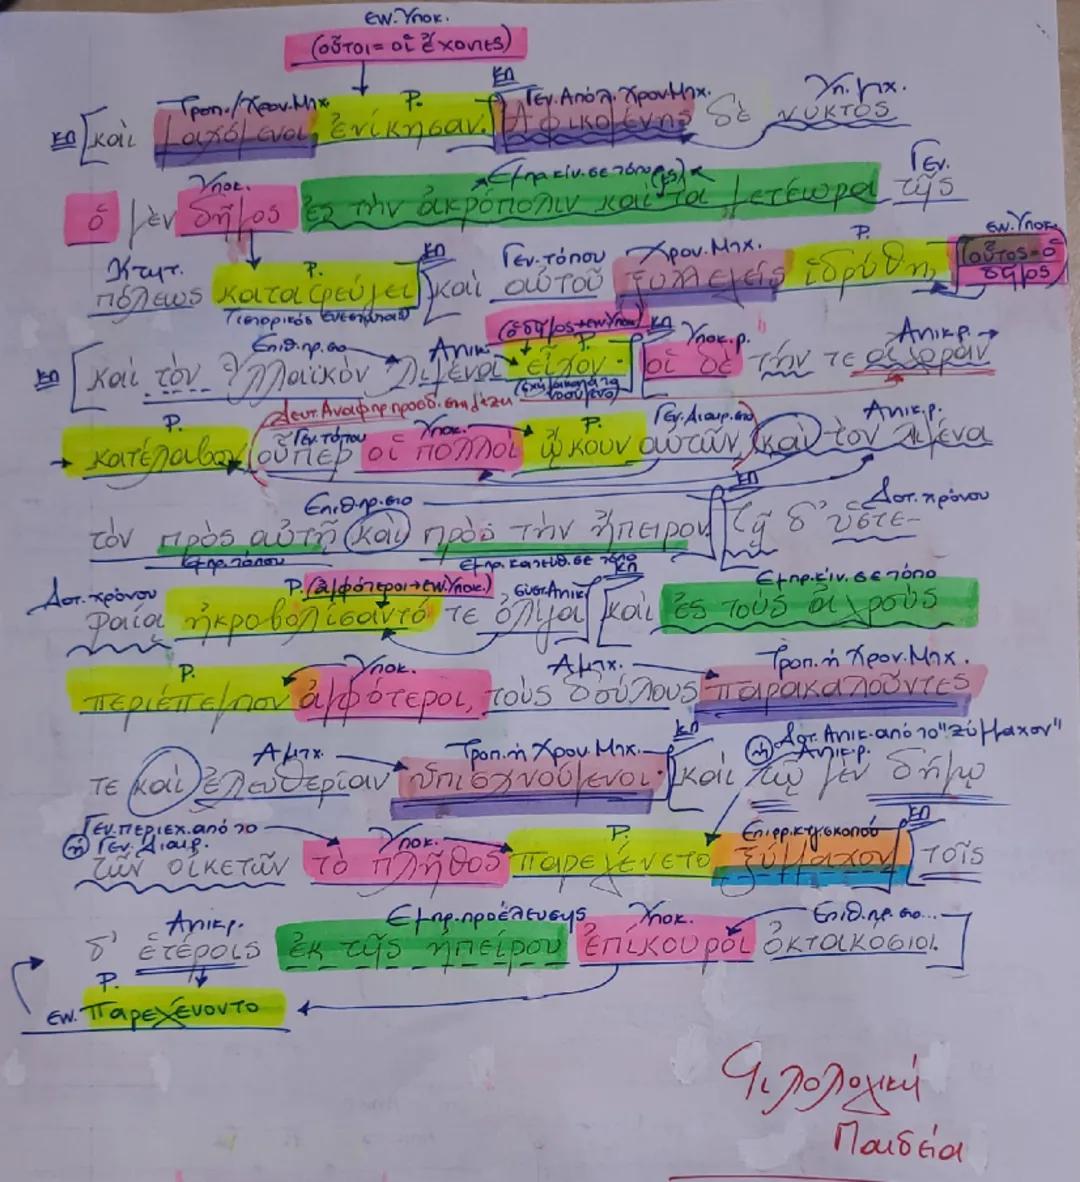 εν. Υποκ.
(οὗτοι = οἱ ἔχοντες)
Τροπ./Χρον. Μτχ. Ρ. ΚΠ Γεν. Απόλ. Χρον. Μτχ. Υπ. μτχ.
ΚΠ [καὶ μαχόμενοι ἐνίκησαν. Ἀφικομένης δὲ νυκτὸς
Υποκ. Εμπρ. κίν. σε τόπο (ἐς) Γεν.
ὁ μὲν δῆμος ἐς τὴν ἀκρόπολιν καὶ τὰ μετέωρα τῆς
Κτητ. Ρ. ΚΠ Γεν. τόπου Χρον. Μτχ. Ρ. εν. Υποκ.
πόλεως καταφεύγει καὶ αὐτοῦ ξυλλεγεὶς ἱδρύθη, (οὗτος = ὁ δῆμος)
Ιστορικός ενεστώτας
(ὁ δῆμος → εν. Υποκ.) ΚΠ
Επιθ. πρ. στο Αντικ. Ρ. Υποκ. ρ. Αντικ. ρ. →
ΚΠ [καὶ τὸν Ὑλλαϊκὸν λιμένα εἶχον· οἱ δὲ τήν τε ἀγορὰν
Δευτ. Αναφ. προσδ.
Ρ. Γεν. τόπου Υποκ. Ρ. Γεν. Διαιρ. στο Αντικ. ρ.
κατέλαβον, (οὗπερ οἱ πολλοὶ ᾤκουν αὐτῶν,) καὶ τὸν λιμένα
Επιθ. πρ. στο ΚΠ Δοτ. χρόνου
τὸν πρὸς αὐτῇ καὶ πρὸς τὴν ἤπειρον. τῇ δ' ὑστε-
Εμπρ. τόπου Εμπρ. κατεύθ. σε τόπο
Δοτ. χρόνου Ρ. (ἀμφότεροι → εν. Υποκ.) Σύστ. Αντικ. ΚΠ Εμπρ. κίν. σε τόπο
ραίᾳ ἠκροβολίσαντό τε ὀλίγα καὶ ἐς τοὺς ἀγροὺς
Ρ. Υποκ. Α μτχ. Τροπ. ή Χρον. Μτχ.
περιέπεμπον ἀμφότεροι, τοὺς δούλους παρακαλοῦντές
Α μτχ. Τροπ. ή Χρον. Μτχ. ΚΠ ή Δοτ. Αντικ. από το "ξύμμαχον"
Αντικ. ρ.
τε καὶ ἐλευθερίαν ὑπισχνούμενοι· καὶ τῷ μὲν δήμῳ
Γεν. περιεχ. από το Υποκ. Ρ. Επιρρ. κτγ. σκοπού ΚΠ
ή Γεν. Διαιρ.
τῶν οἰκετῶν τὸ πλῆθος παρεγένετο ξύμμαχον, τοῖς
Αντικ. ρ. Εμπρ. προέλευσης Υποκ. Επιθ. πρ. στο...
δ' ἑτέροις ἐκ τῆς ἠπείρου ἐπίκουροι ὀκτακόσιοι.]
Ρ.
εν. παρεγένοντο
Φιλολογική
Παιδεία